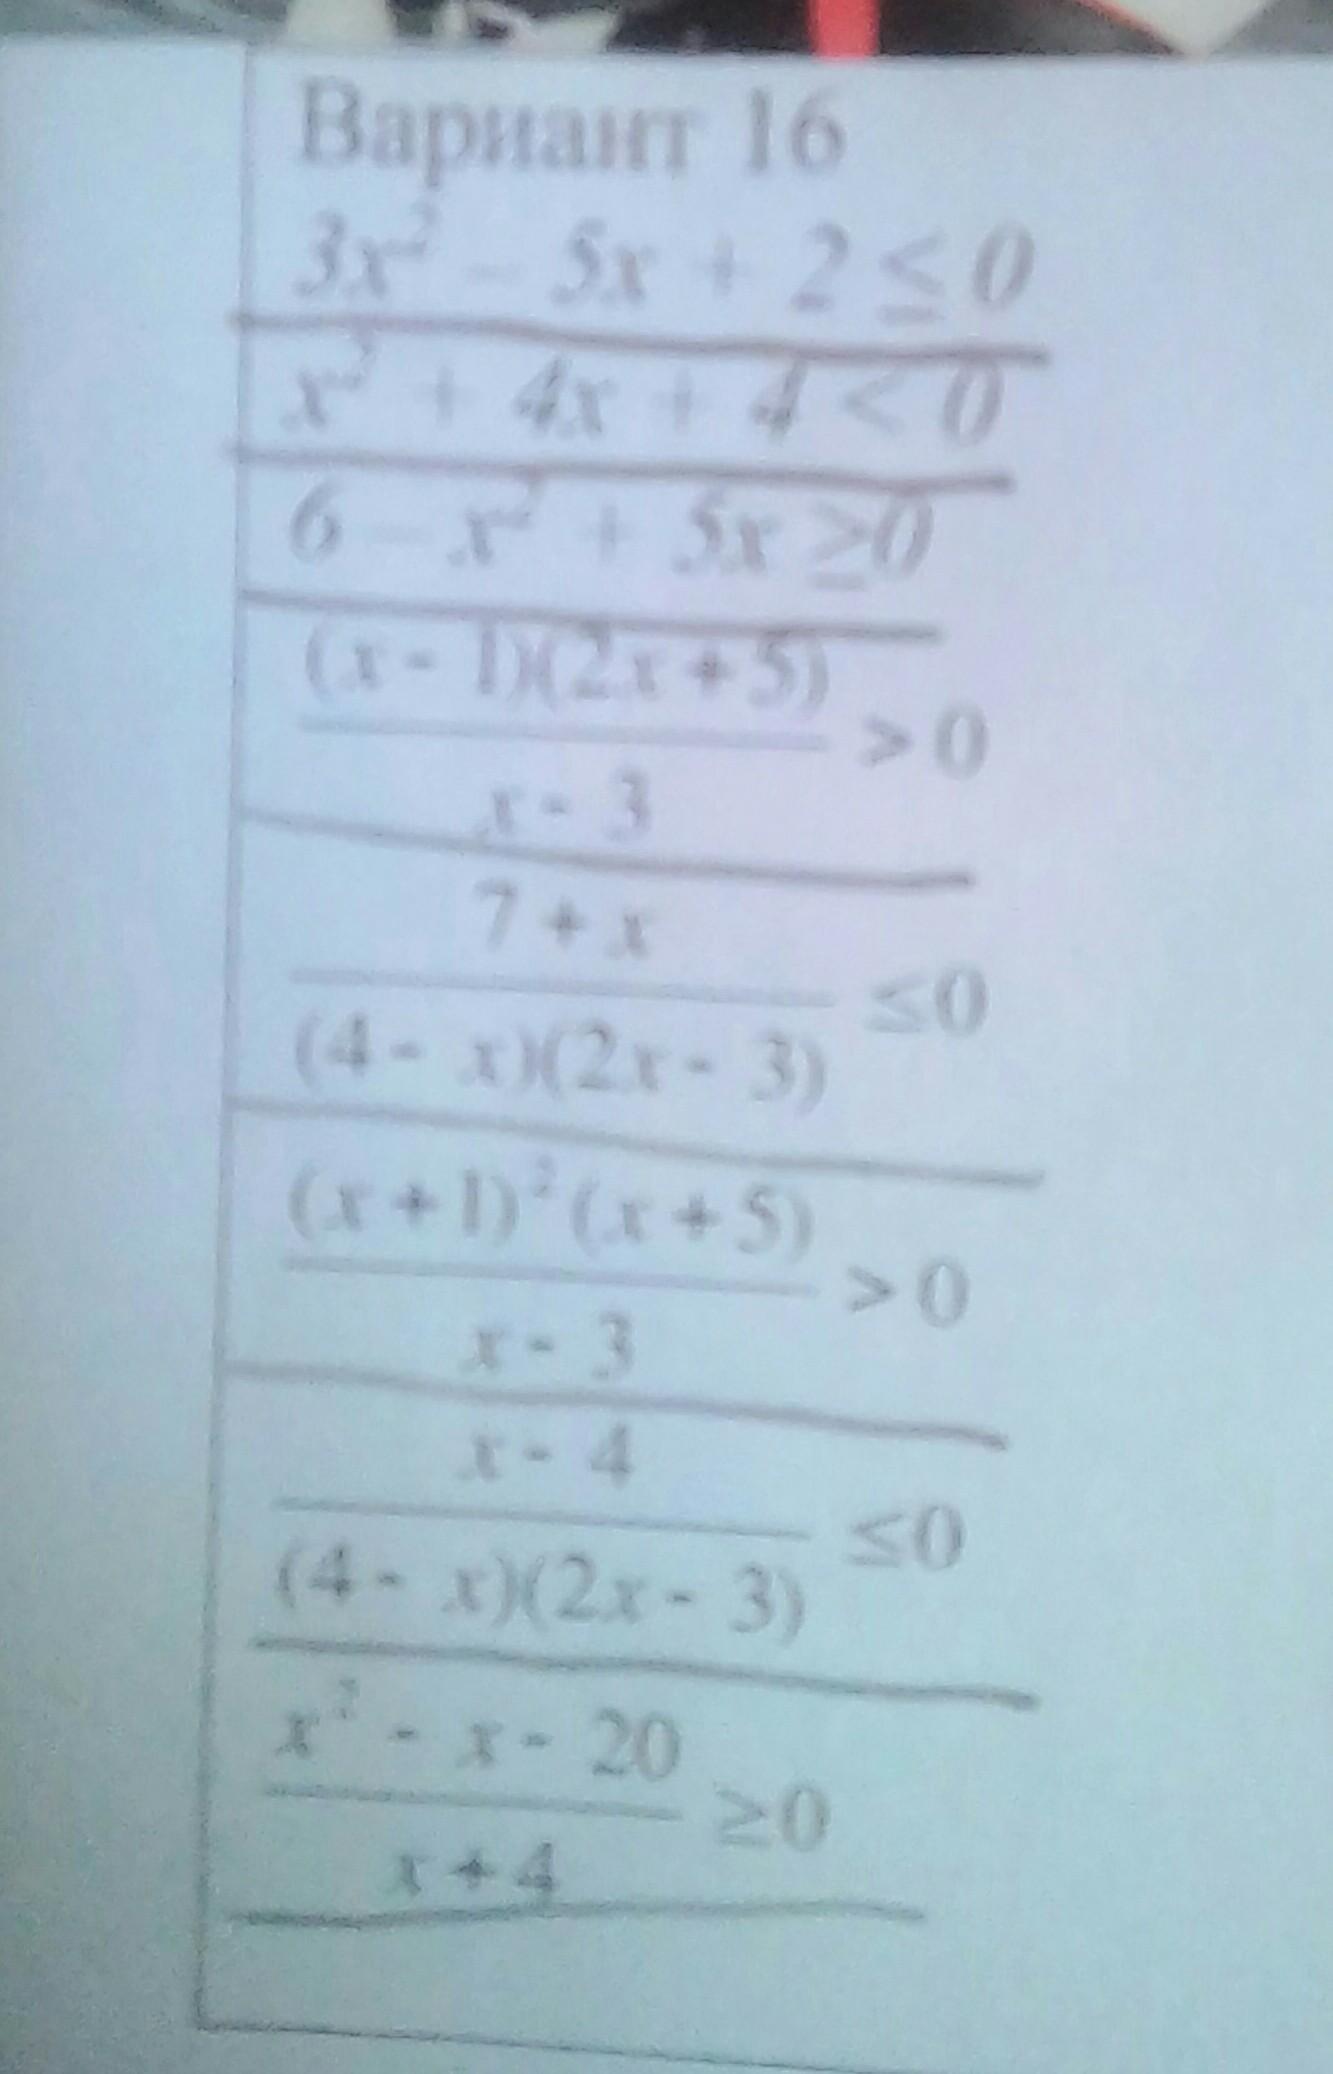 Вариант 16
3x² - 5x + 2 ≤ 0
x² + 4x + 4 < 0
6 - x² + 5x ≥0
(x - 1)(2x + 5)
> 0
x - 3
7 + x
≤0
(4 - x)(2x - 3)
(x + 1)² (x + 5)
> 0
x - 3
x - 4
≤0
(4 - x)(2x - 3)
x² - x - 20
≥0
x + 4